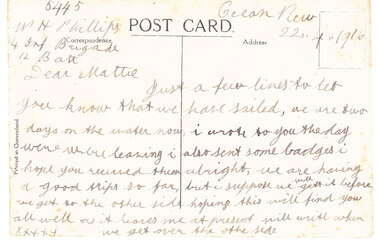 5445
Wm H Phillips
4 Inf Brigade
12 Batt
Ocean View
22. 4. 1916
POST CARD.
Correspondence
Address
Printed in Queensland
Dear Mattie
Just a few lines to let
you know that we have sailed, we are two
days on the water now, i wrote to you the day
were were leaving i also sent some badges i
hope you received them alright, we are having
a good trips so far, but i suppose we will get it before
we get to the other side hoping this will find you
all well as it leaves me at present will write when
xxxxx we get over the othe side